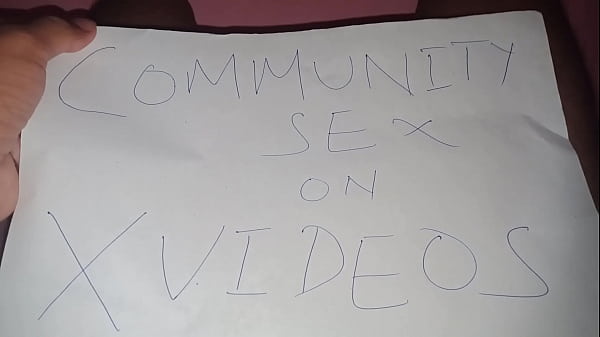 COMMUNITY
SEX
ON
XVIDEOS